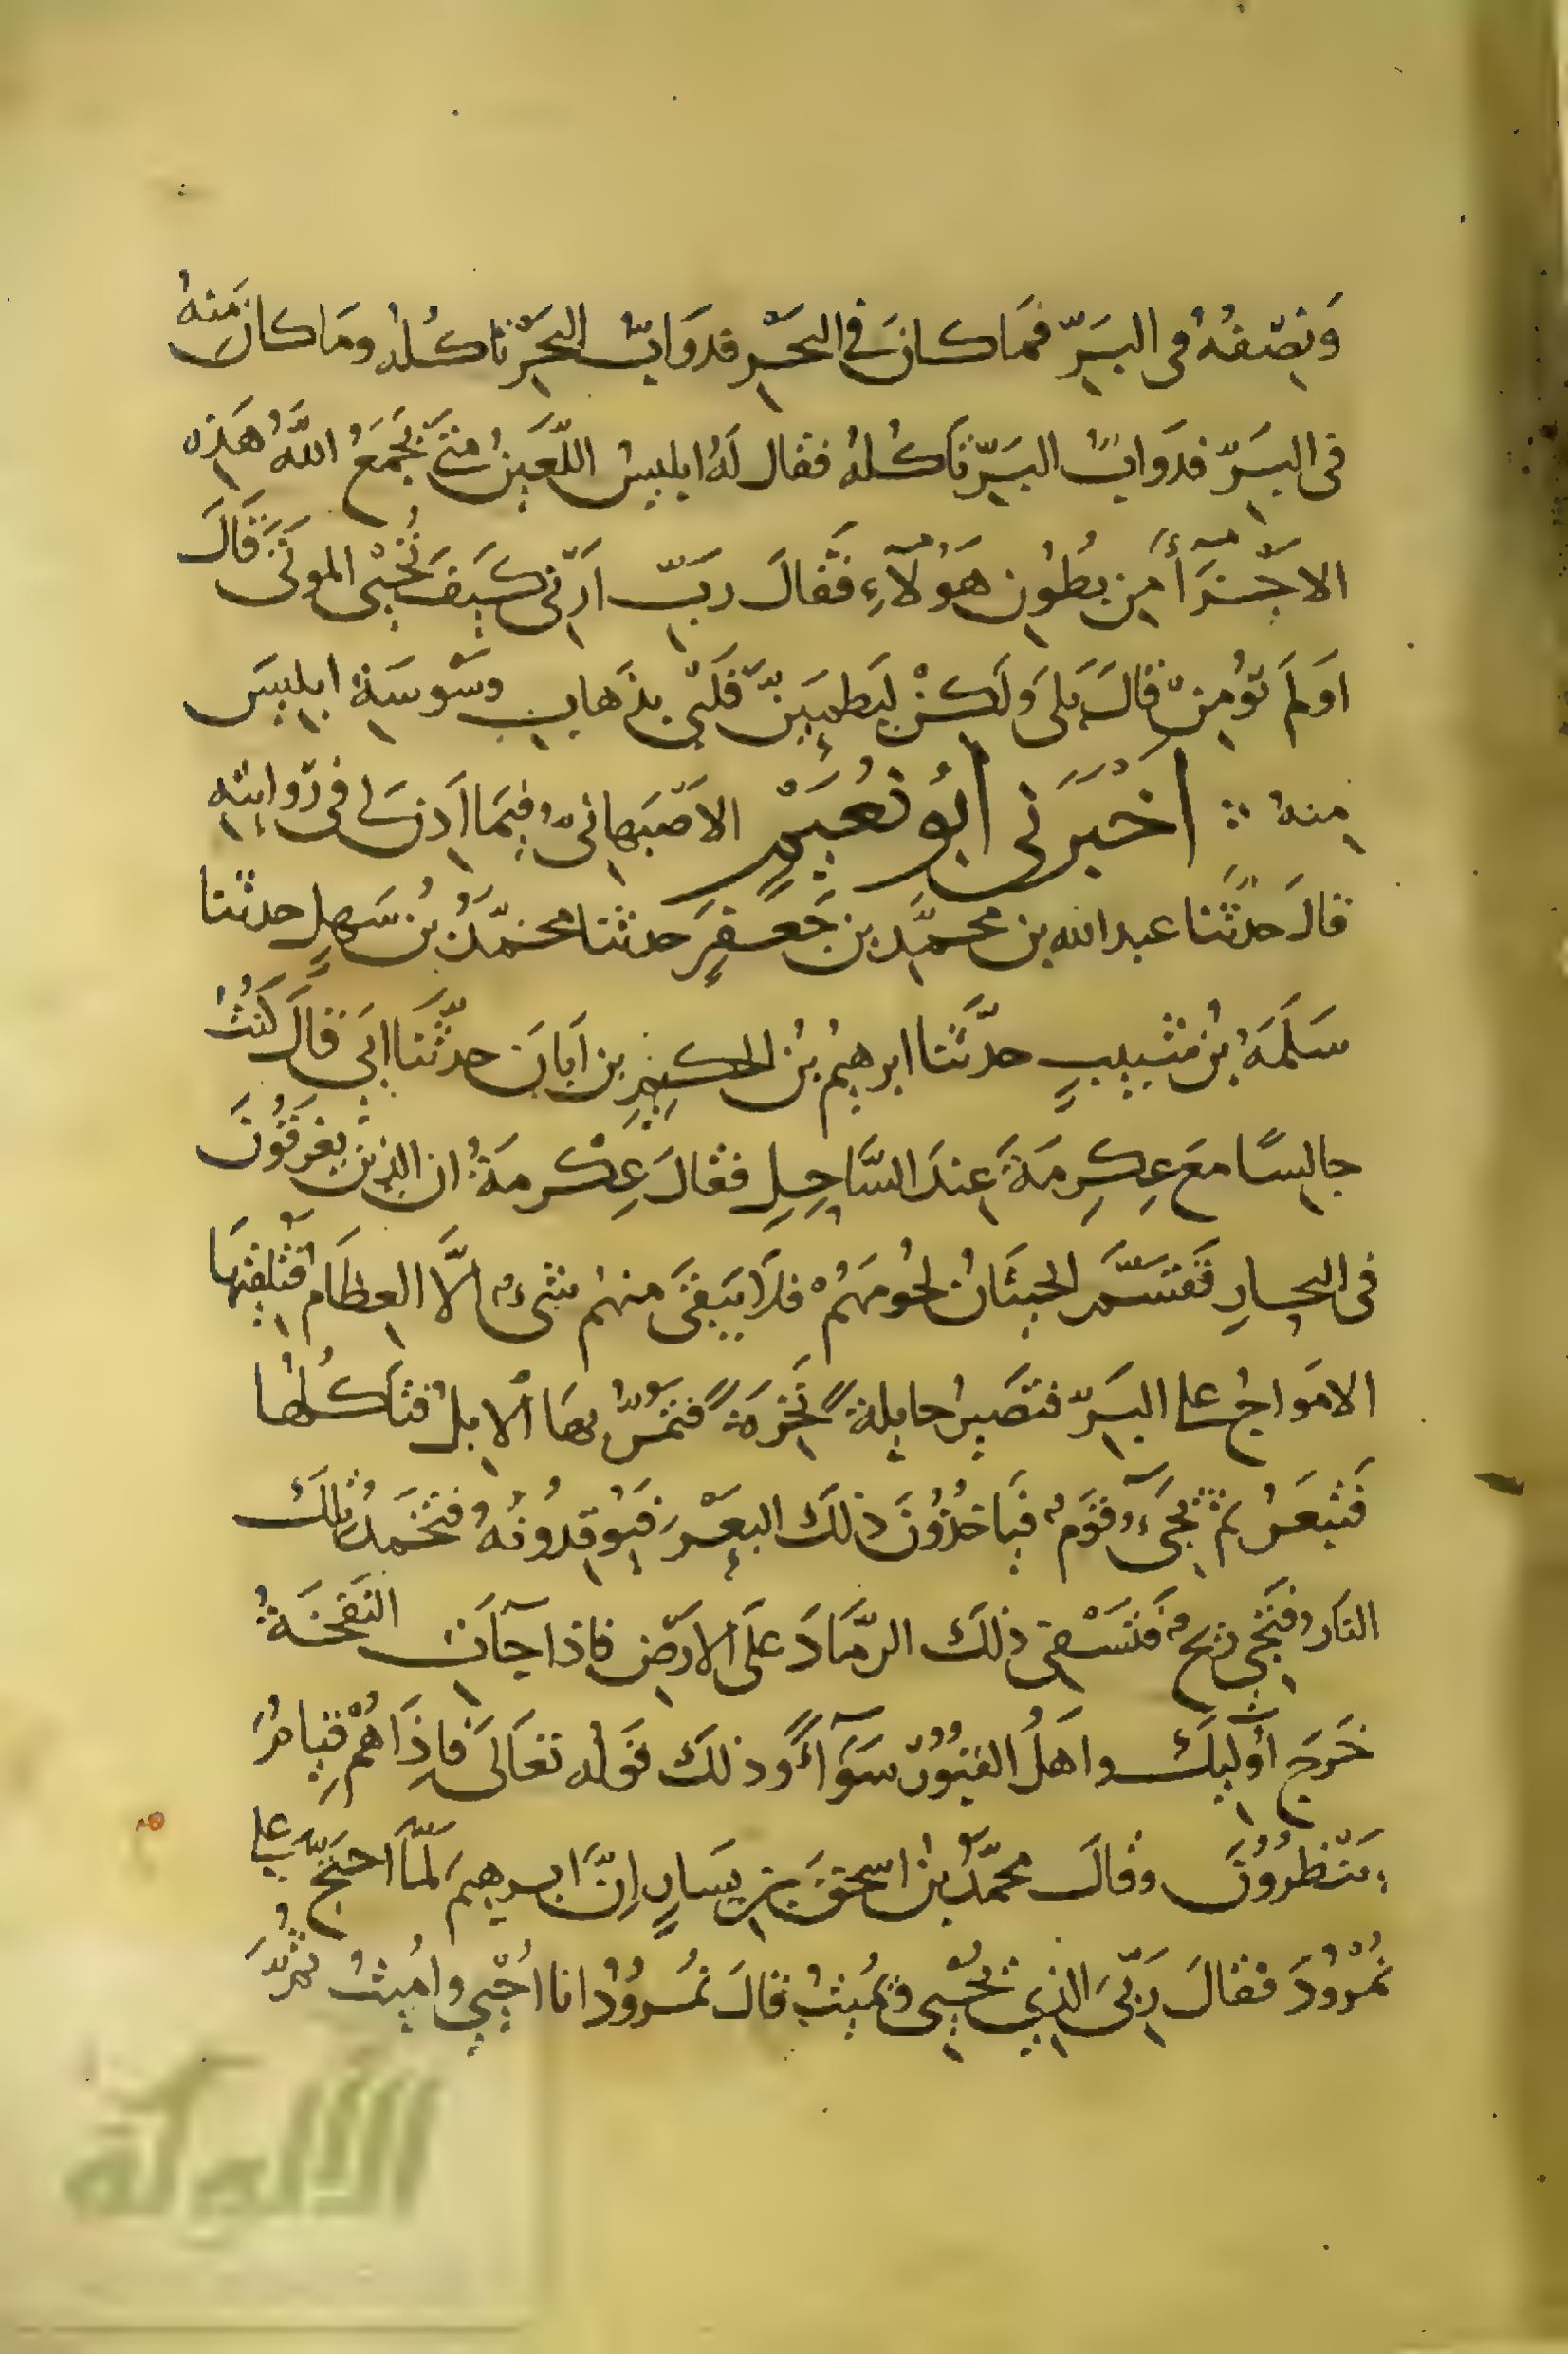 وَنِصْفُهُ فى البَرِّ فَمَا كانَ فى البَحْرِ فدَوَابُّ البَحْرِ تاكُلهُ ومَا كانَ مِنهُ
فى البَرِّ فدَوَابُّ البَرِّ تَاكُلهُ فقال لَهُ ابليسُ اللَّعَينُ مَتَى يَجْمَعُ اللَّهُ هَذِه
الاَجْزَآءَ مِن بُطُونِ هَؤُلَآءِ فَقَالَ رَبِّ اَرِنْى كَيَفَ تُحْيِى الموتَى قَالَ
اَوَلَم تؤُمِنْ قالَ بَلىَ وَلَكِنْ لِيَطمِيَنَّ قَلبْى بذَهابِ وسَوْسَةِ ابليسَ
مِنهُ ∴ اَخْبَرَنى اَبُو نُعَيْمٍ الاصْبَهانىُّ فِيمَا اَذِنَ لى فى رِوَايتِهِ
قالَ حدثَنا عبد الله بن محمَّدِ بن جَعْفرٍ حدثنا محمّدُ بنُ سَهلٍ حدثنا
سَلَمَةُ بنُ شبيبٍ حدَّثَنا ابرهيمُ بنُ الحكمِ بن اَبَانَ حدثَّنَا ابَى قالَ كنتُ
جالِسًا معَ عِكِرِمَةَ عِندَ السَّاحِلِ فقالَ عِكْرمَةُ ان الذينَ يغرَقُونَ
فى البحارِ تَقتَسَّمُ الحِيتَانُ لحُومَهُمْ فلاَ يَبقَى منهُم شىءٌ الَّا العِظَام فتُلقيَها
الامَواجُ على البَرِّ فتَصَيرُ حايلةً نَخِرَةً فتَمُرُّ بهَا الابِلُ فتاَكُلهُا
فَتبعَرُ ثم يَجىءُ قوَمٌ فيَاخذُوُنَ ذلكَ البعَرْ فيَوُقِدُونَهُ فتَخمَدُ تِلكَ
النَارُ فتَجِى ريحٌ فَتَسْفى ذلكَ الرمَّادَ علَى الارضِ فاذا جَآتِ النَفخَةُ
خَرَجَ اُوَليِكَ واهَلُ القبُورِ سَوَآءً وذلكَ قوَلُه تعَالَى فَاِذَا هُمْ قِيَامٌ
يَنظرُوُنَ وقالَ محمَّدُ بنُ اسحقَ بنِ يسَارٍ اِنَّ ابرهيمَ لَمَّا احتَجَّ على
نُمْرُوُدَ فقالَ رَبِّىَ الذِى يُحْيِى ويُميِتُ قالَ نُمروُدُ انا اُحْيِى واُمِيتُ ثُمَّ
الألوكة